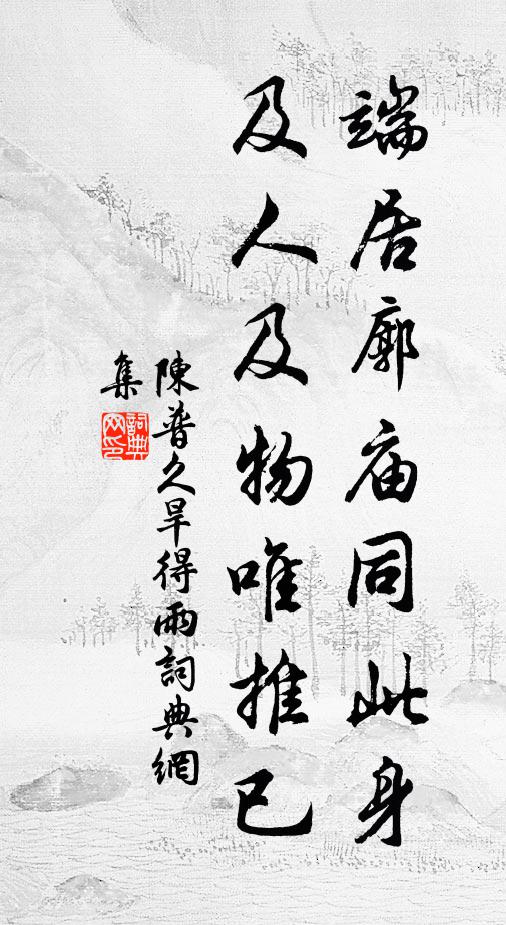 端居廊庙同此身
及人及物唯推已
陳普久旱得雨詞典網
集
詞典
网印